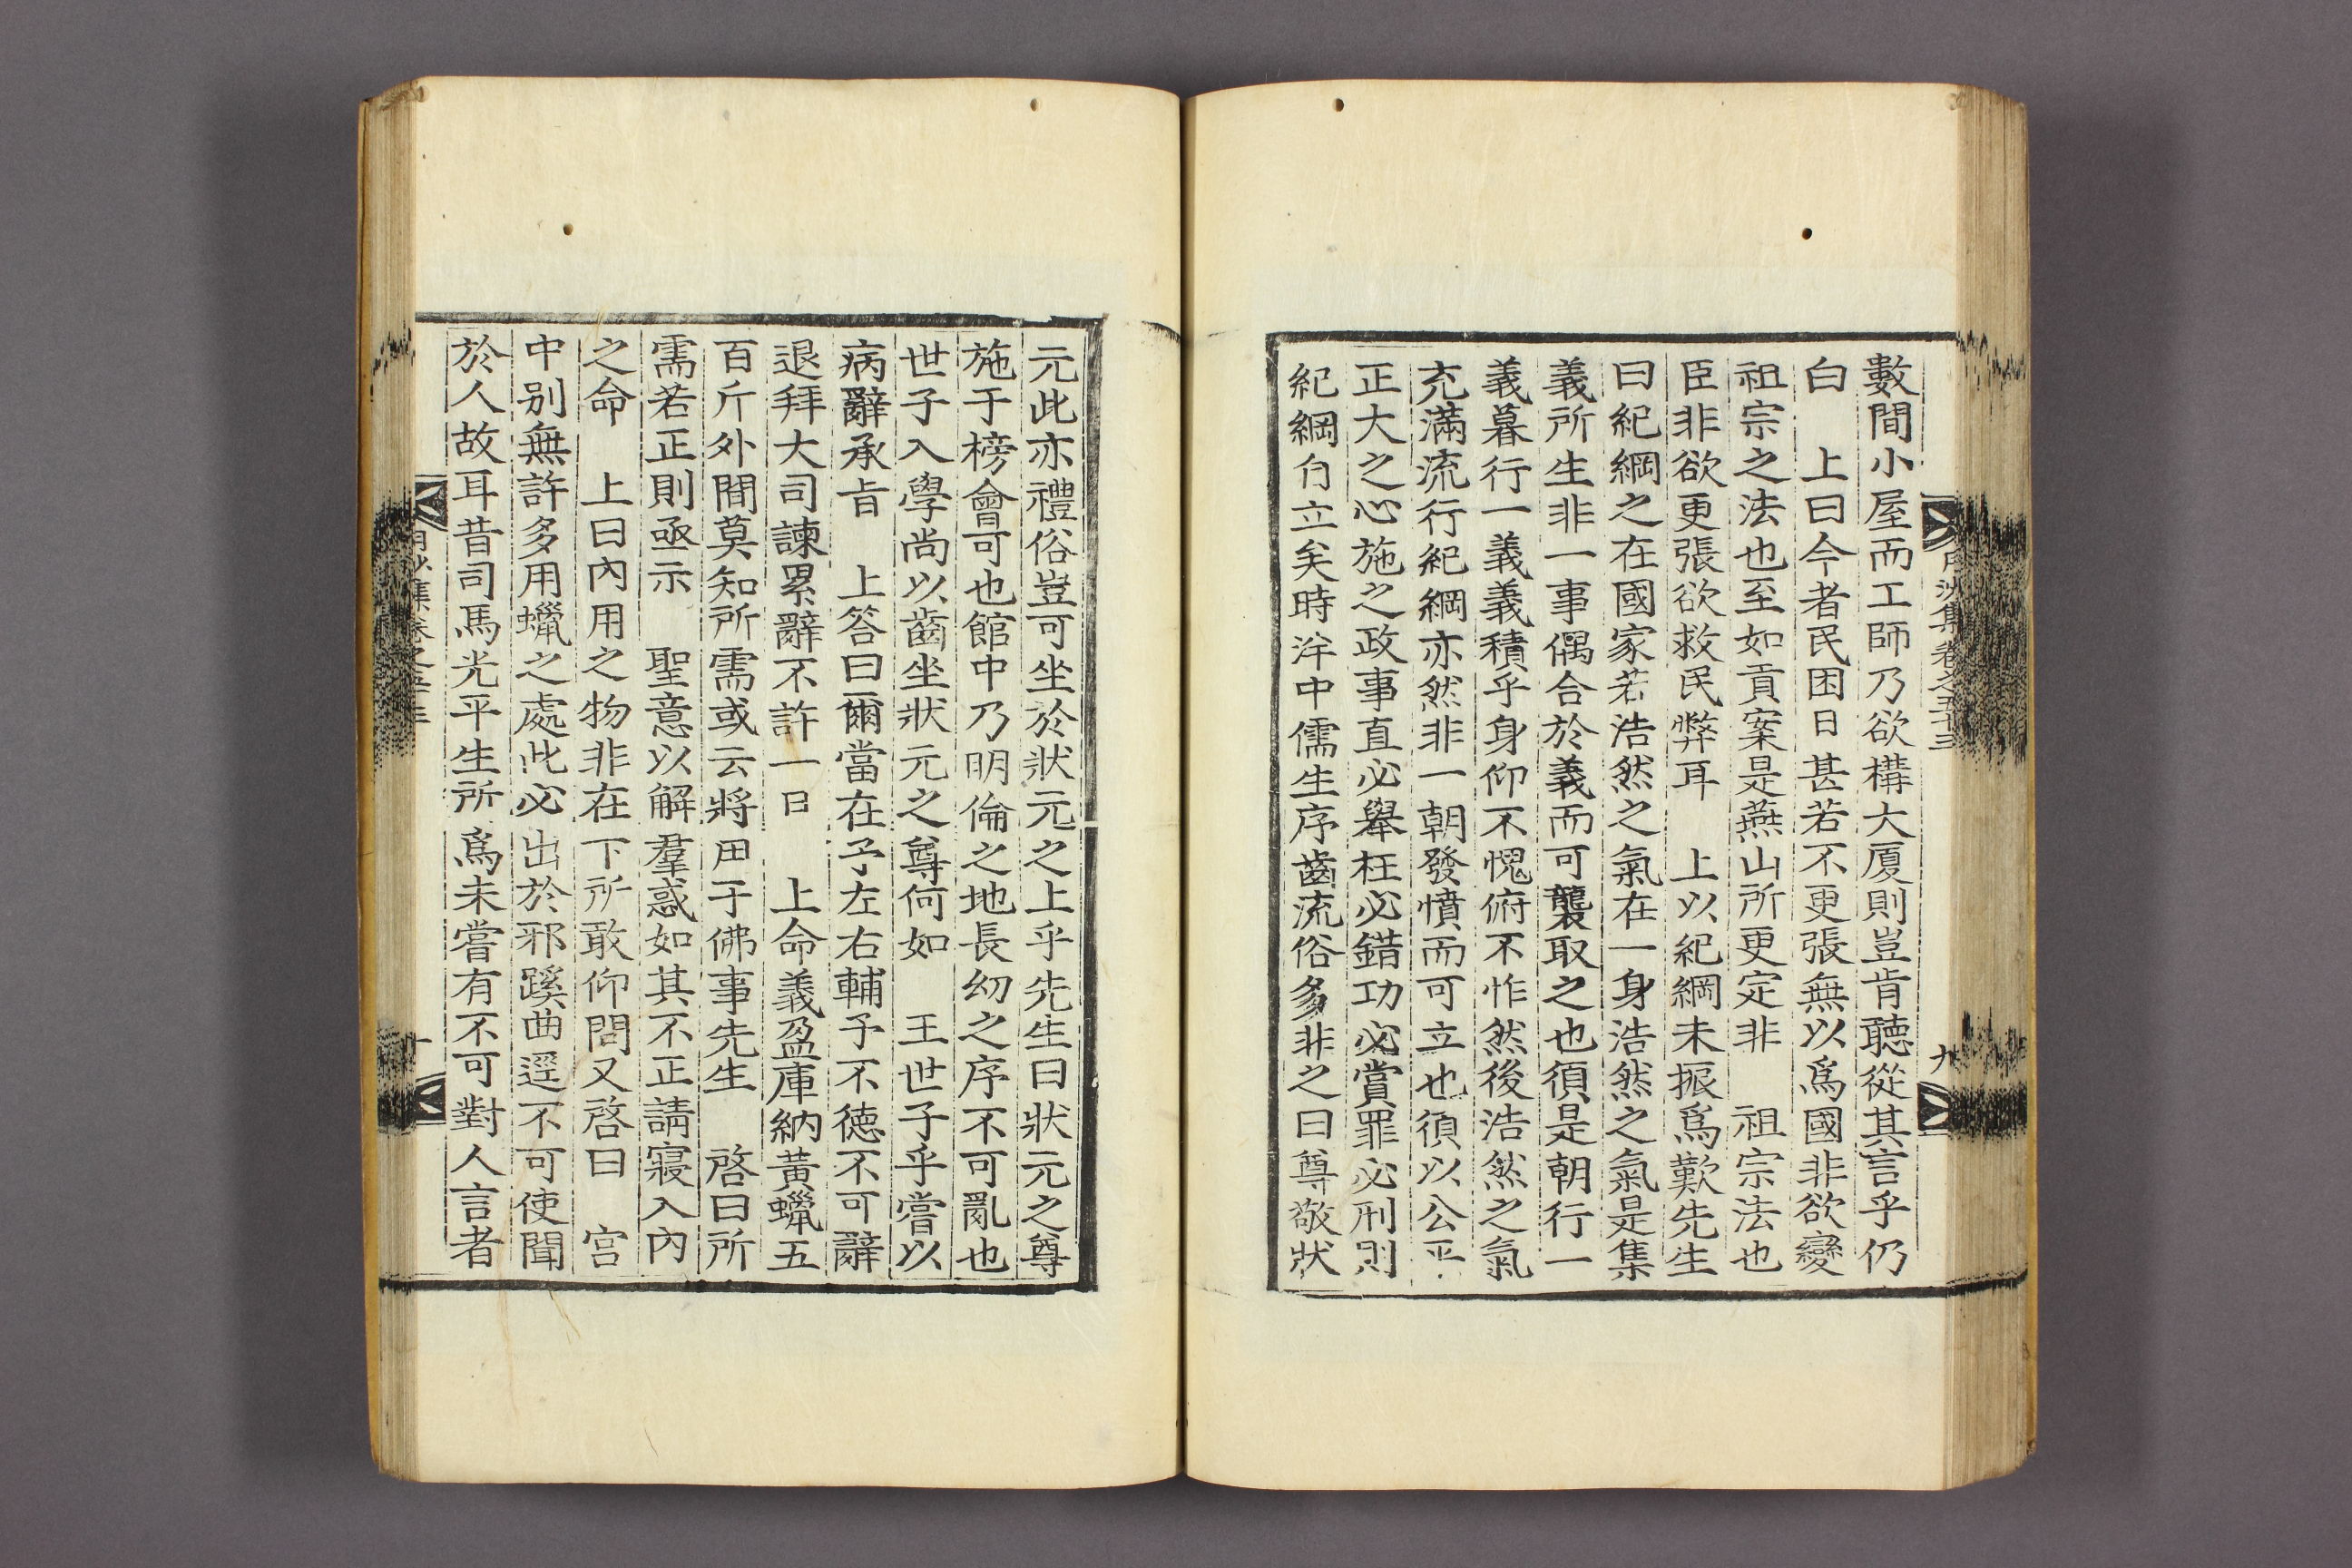 月沙集卷之五十三
九
數間小屋而工師乃欲構大厦則豈肯聽從其言乎仍
白　上曰今者民困日甚若不更張無以爲國非欲變
祖宗之法也至如貢案是燕山所更定非　祖宗法也
臣非欲更張欲救民弊耳　上以紀綱未振爲歎先生
曰紀綱之在國家若浩然之氣在一身浩然之氣是集
義所生非一事偶合於義而可襲取之也須是朝行一
義暮行一義義積乎身仰不愧俯不怍然後浩然之氣
充滿流行紀綱亦然非一朝發憤而可立也須以公平
正大之心施之政事直必舉枉必錯功必賞罪必刑則
紀綱自立矣時泮中儒生序齒流俗多非之曰尊敬狀
元此亦禮俗豈可坐於狀元之上乎先生曰狀元之尊
施于榜會可也館中乃明倫之地長幼之序不可亂也
世子入學尚以齒坐狀元之尊何如　王世子乎嘗以
病辭承旨　上答曰爾當在予左右輔予不德不可辭
退拜大司諫累辭不許一日　上命義盈庫納黃蠟五
百斤外間莫知所需或云將用于佛事先生　啓曰所
需若正則亟示　聖意以解羣惑如其不正請寢入內
之命　上曰內用之物非在下所敢仰問又啓曰　宮
中別無許多用蠟之處此必出於邪蹊曲逕不可使聞
於人故耳昔司馬光平生所爲未嘗有不可對人言者
月沙集卷之五十三
十